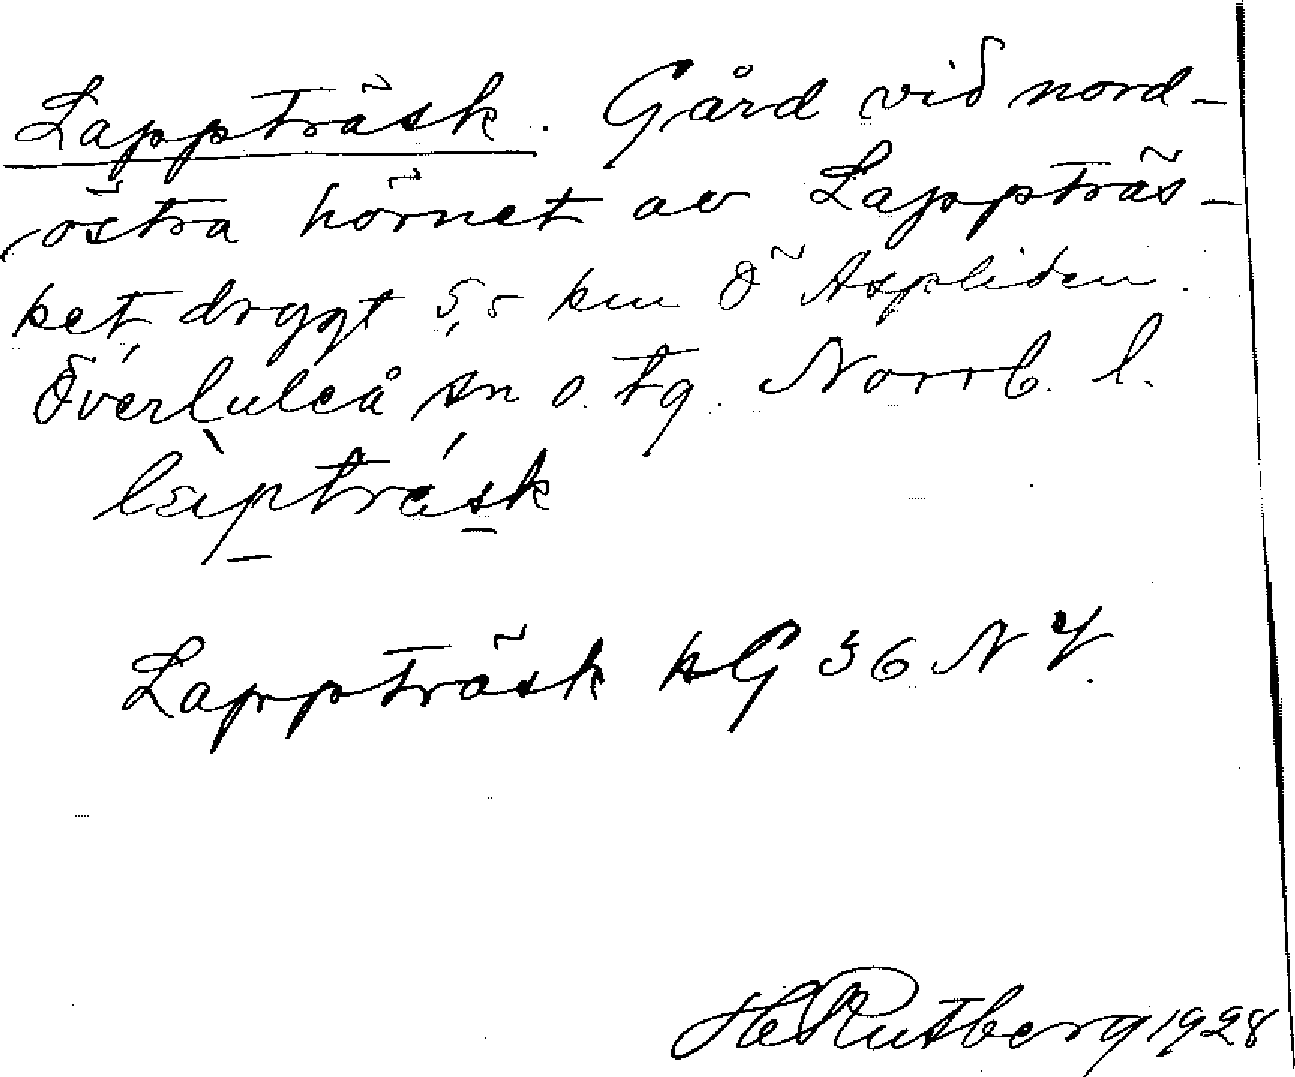 Lappträsk. Gård vid nord-
östra hörnet av Lappträs-
ket drygt 5,5 km Ö Aspliden.
Överluleå sn o. tg. Norrb. l.
Lappträsk kG 36 NV.
H Rutberg 1928